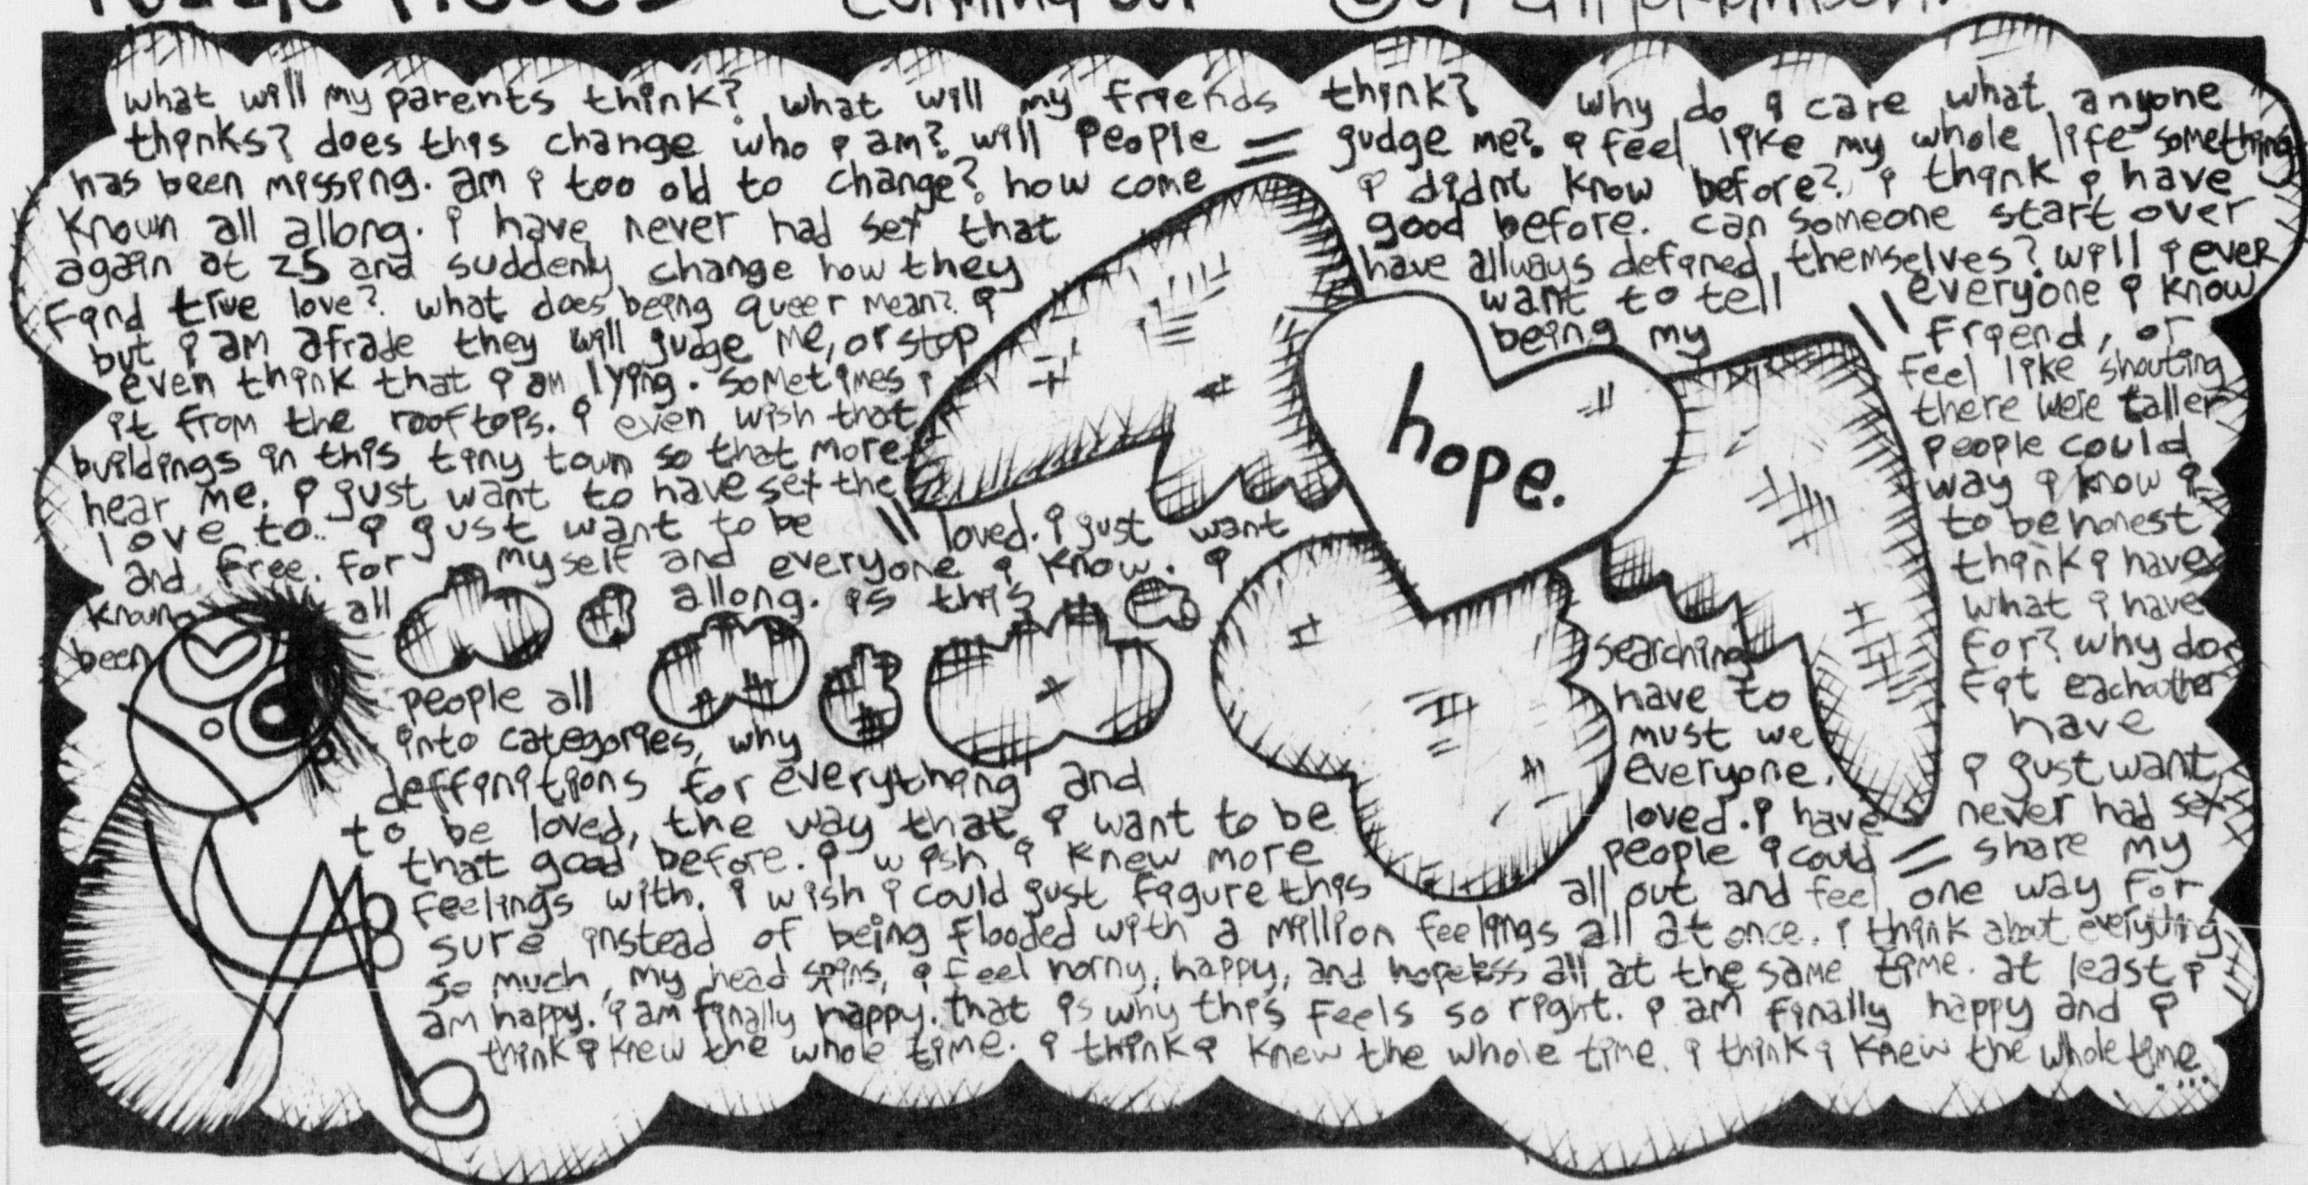 coming out
what will my parents think? what will my friends think? why do i care what anyone
thinks? does this change who i am? will people judge me? i feel like my whole life something
has been missing. am i too old to change? how come i didnt know before? i think i have
known all allong. i have never had sex that good before. can someone start over
again at 25 and suddenly change how they have allways defined themselves? will i ever
find true love? what does being queer mean? i want to tell everyone i know
but i am afrade they will judge me, or stop being my friend, or
even think that i am lying. sometimes i feel like shouting
it from the rooftops. i even wish that there were taller
buildings in this tiny town so that more people could
hear me. i just want to have sex the way i know i
love to. i just want to be loved. i just want to be honest
and free. for myself and everyone i know. i think i have
known all allong. is this what i have
been searching for? why do
people all have to fit eachother
into categories, why must we have
deffinitions for everything and everyone. i just want
to be loved, the way that i want to be loved. i have never had sex
that good before. i wish i knew more people i could share my
feelings with. i wish i could just figure this all out and feel one way for
sure instead of being flooded with a million feelings all at once. i think about everything
so much, my head spins, i feel horny, happy, and hopeless all at the same time. at least i
am happy. i am finally happy. that is why this feels so right. i am finally happy and i
think i knew the whole time. i think i knew the whole time. i think i knew the whole time....
hope.